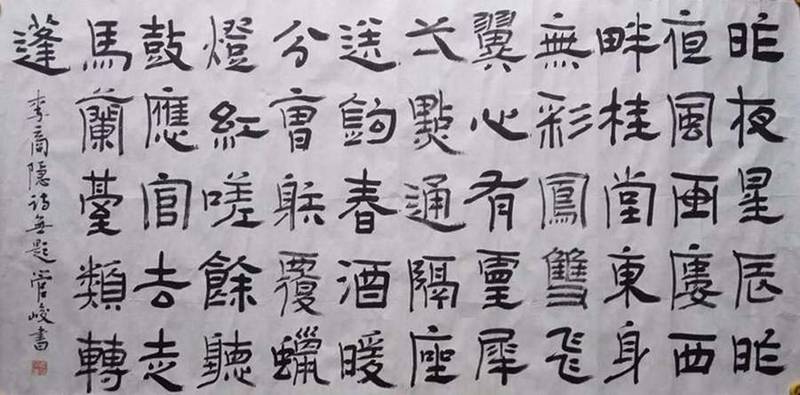 昨夜星辰昨
夜風画廔西
畔桂堂東身
無彩鳳雙飛
翼心有靈犀
弌點通隔座
送鉤春酒暖
分曹䠶覆蠟
燈紅嗟餘聽
鼓應官去走
馬蘭臺類轉
蓬
李商隐诗無題管峻書